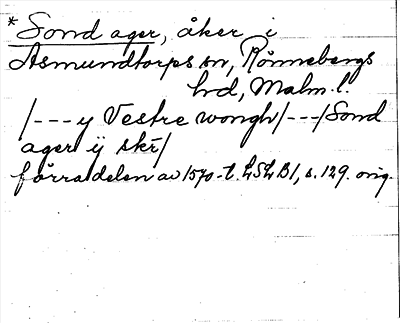 *Sond ager, åker i
Asmundtorps sn, Rönnebergs
hd, Malm. l.
/---y Vestre wongh/---/Sond
ager ÿ skr/
förra delen av 1570-t. LSLB1, s. 129. orig.